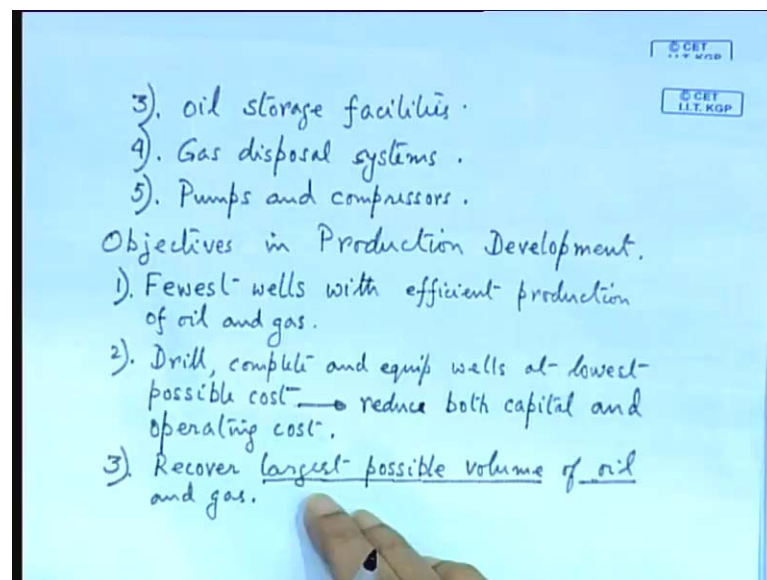 © CET
I.I.T. KGP
© CET
I.I.T. KGP
3). Oil storage facilities.
4). Gas disposal systems.
5). Pumps and compressors.
Objectives in Production Development.
1). Fewest wells with efficient production
of oil and gas.
2). Drill, complete and equip wells at lowest
possible cost → reduce both capital and
operating cost.
3). Recover largest possible volume of oil
and gas.